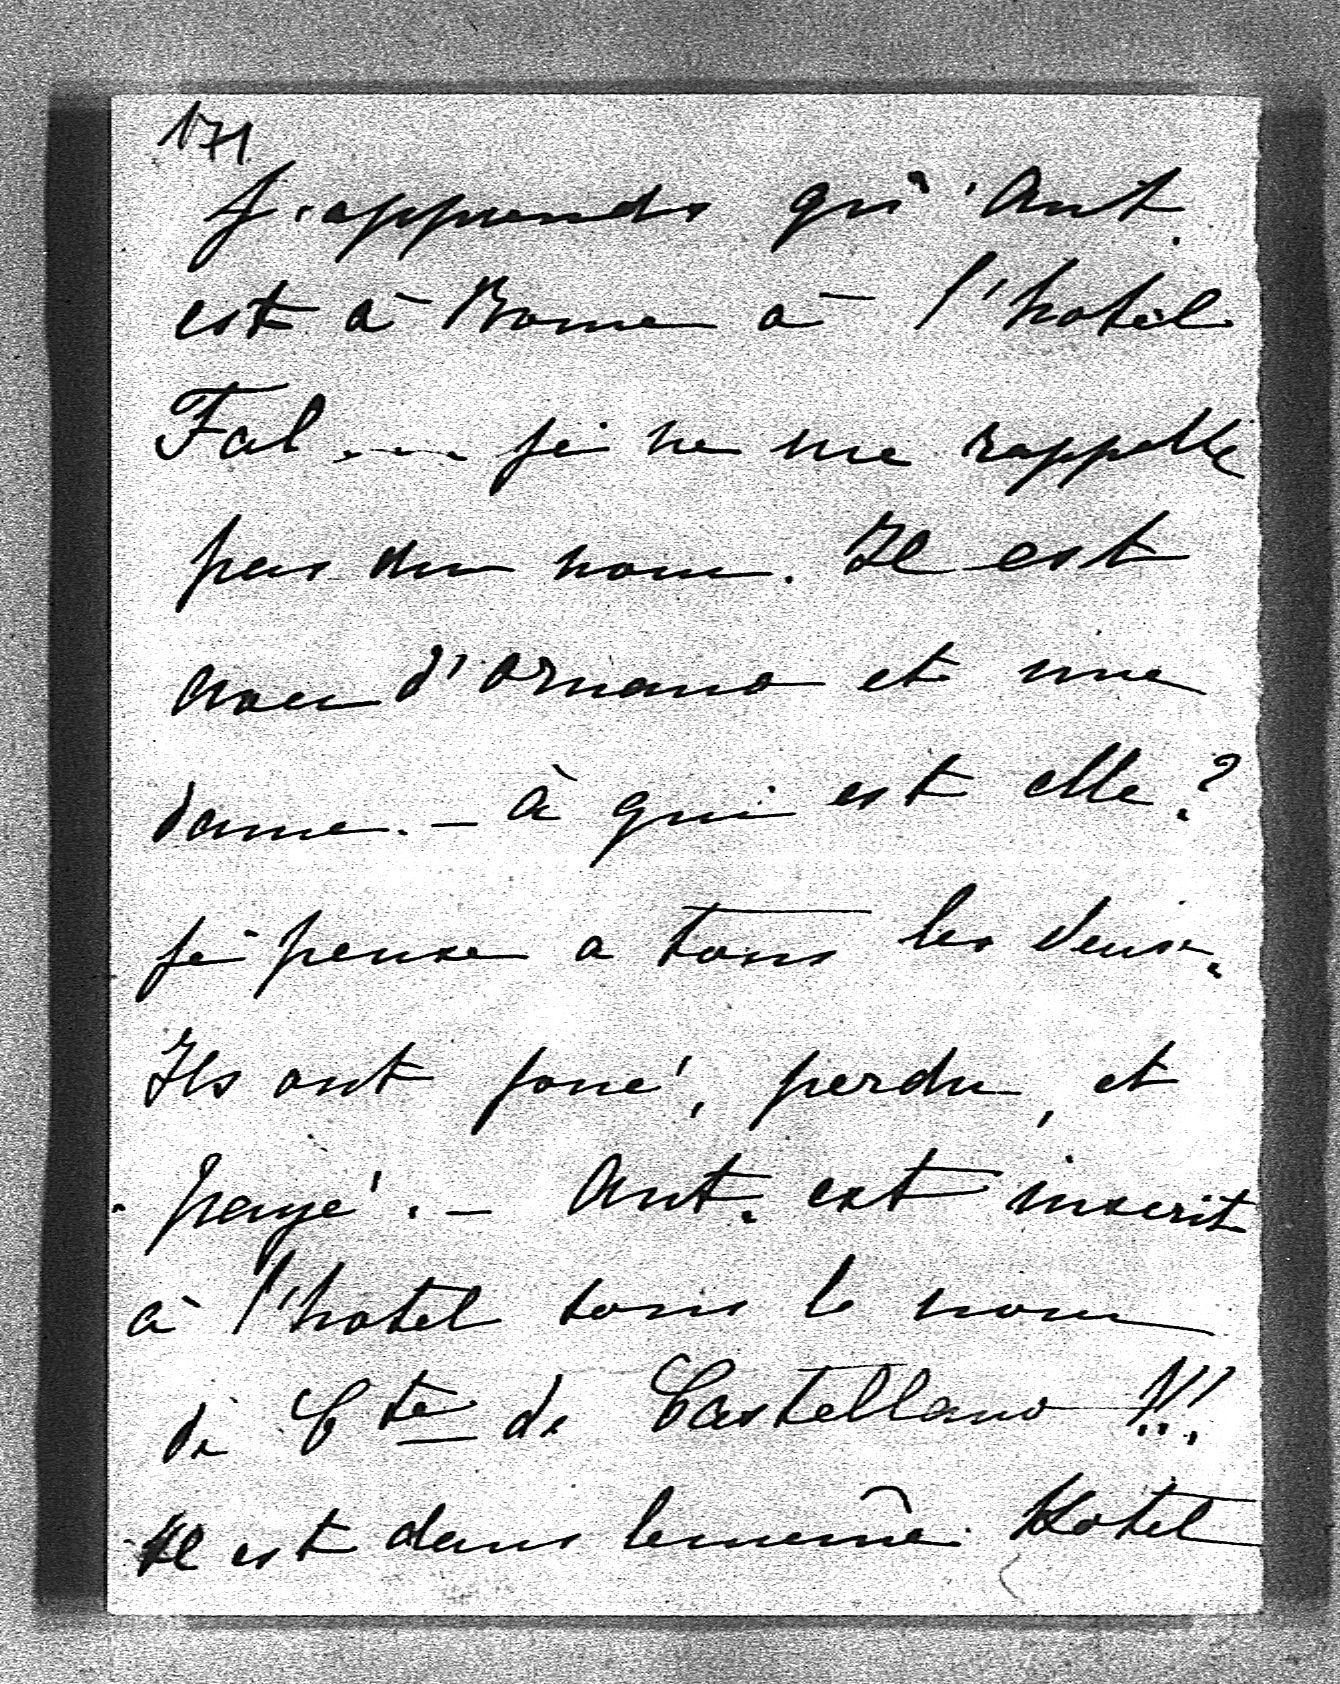 171
J'apprends qu'Ant.
est à Rome à l'hotel
Fal.... je ne me rappelle
pas du nom. Il est
avec d'Ornano et une
dame. – à qui est elle?
je pense a tous les deux.
Ils ont joué, perdu, et
payé. – Ant. est inscrit
à l'hotel sous le nom
de Cte de Castellano !!!
Il est dans le même Hotel